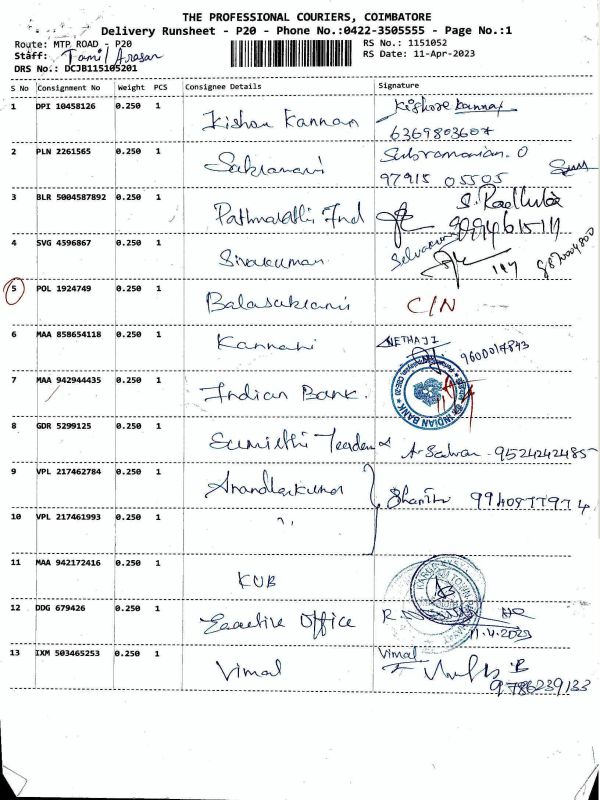 THE PROFESSIONAL COURIERS, COIMBATORE
Delivery Runsheet - P20 - Phone No.:0422-3505555 - Page No.:1
Route: MTP ROAD - P20
RS No.: 1151052
Staff: Tamil Arasan
RS Date: 11-Apr-2023
DRS No.: DCJB115105201
S No Consignment No Weight PCS Consignee Details Signature
1 DPI 10458126 0.250 1 Kishore Kannan Kishore Kannan
6369803607
2 PLN 2261565 0.250 1 Subramanian. O
97915 05505
3 BLR 5004587892 0.250 1 Ind S.
4 SVG 4596867 0.250 1 Sivakumar
5 POL 1924749 0.250 1 C/N
6 MAA 858654118 0.250 1 Kannani NETHAJI
9600017843
7 MAA 942944435 0.250 1 Indian Bank. INDIAN BANK
8 GDR 5299125 0.250 1 9524242485
9 VPL 217462784 0.250 1 9940877974
10 VPL 217461993 0.250 1 "
11 MAA 942172416 0.250 1 KUB
12 DDG 679426 0.250 1 Office R.
11.4.2023
13 IXM 503465253 0.250 1 Vimal Vimal
9786239133